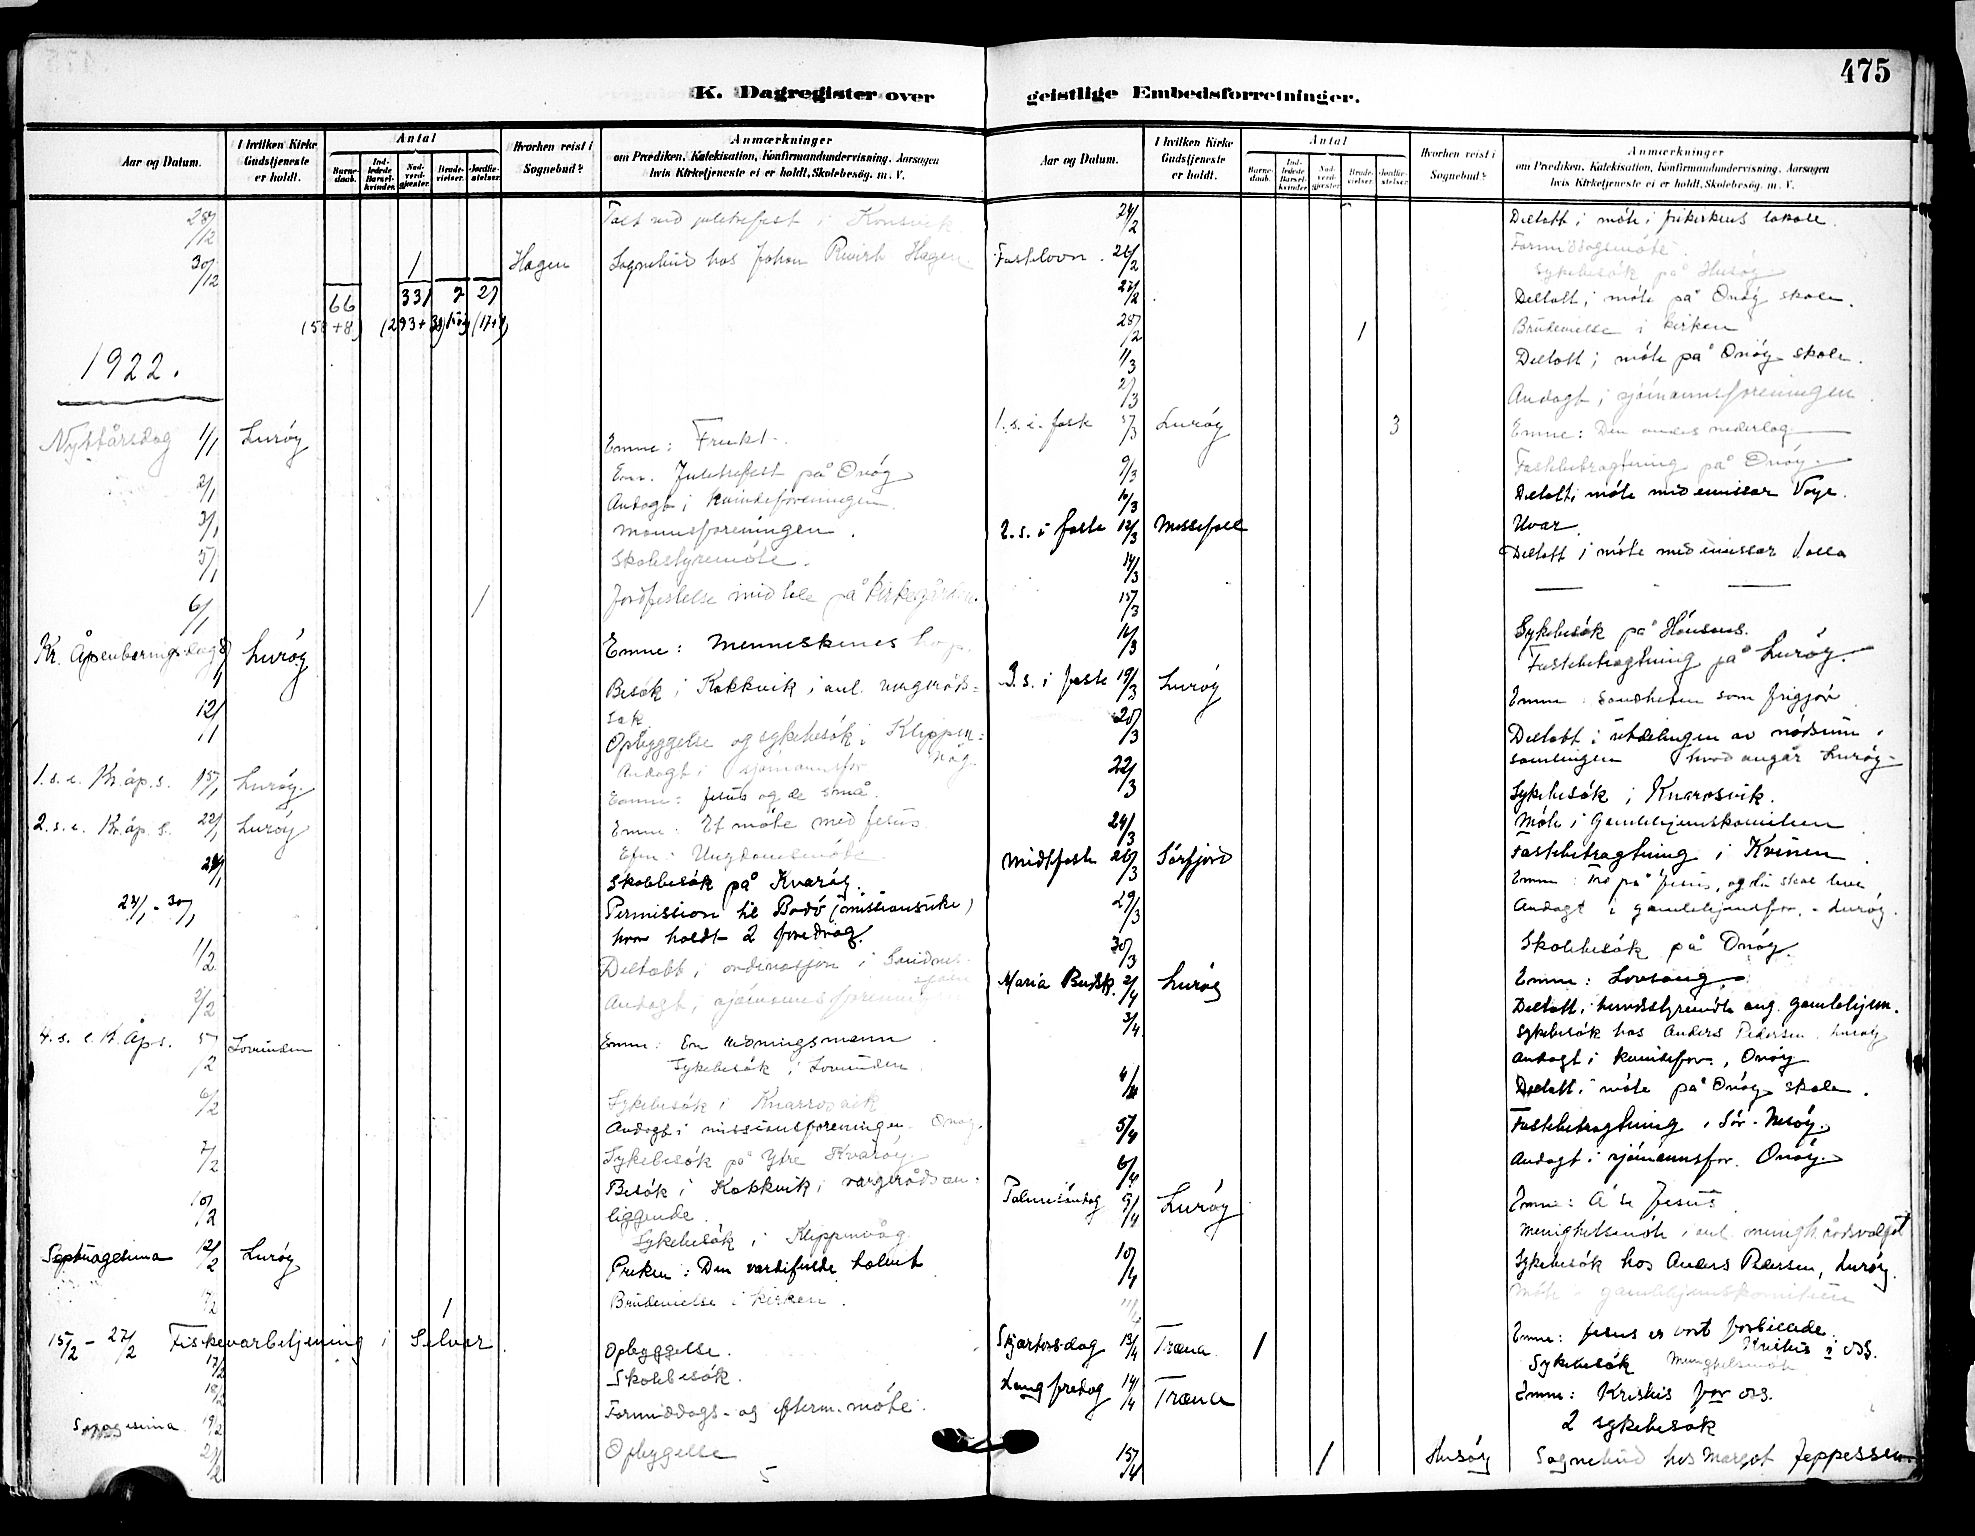 475
K. Dagregister over geistlige Embedsforretninger.
Aar og Datum.
I hvilken Kirke Gudstjeneste er holdt.
Antal
Barnedaab.
Indledede Barselkvinder.
Nadverdgjester.
Brudevielser.
Jordfæstelser.
Hvorhen reist i Sognebud?
Anmærkninger
om Prædiken, Katekisation, Konfirmandundervisning, Aarsagen
hvis Kirketjeneste ei er holdt, Skolebesøg. m. V.
28/12 Talt ved juletrefest i Konsvik
30/12 1 Hagen Sognebud hos Johan Hagen.
66 331 7 27
(58+8) (293+38)
1922.
Nyttårsdag 1/1 Lurøy Emne: Frukt.
Em. Juletrefest på Onøy
2/1 Andagt i kvindeforeningen
3/1 mannsforeningen.
5/1 Skolestyremöte.
6/1 1 Jordfestelse med tale på Kirkegården.
Kr. Åpenbaringsdag 8/1 Lurøy Emne: Menneskenes håp.
Besök i Kokkvik i anl. vergeråds=
sak
12/1 Opbyggelse og sykebesök i Klippen=
Andagt i sjömannsfor
1. s. e. Kr. åp. s. 15/1 Lurøy. Emne: Jesus og de små.
2. s. e. Kr. åp. s. 22/1 Lurøy Emne: Et möte med Jesus.
Efm: Ungdomsmöte
24/1 Skolebesök på Kvaröy.
24/1 - 30/1 Permission til Bodö (missionsuke)
hvor holdt 2 foredrag.
1/2 Deltatt i ordinasjon i Sandnes-
sjöen
2/2 Andagt i sjömannsforeningen
4. s. e. Kr. Åp. s. 5/2 Lovunden Emne: En ... mann
Sykebesök i Lovunden
6/2 Sykebesök i Knarrosvik
Andagt i missionsforeningen, Onøy.
7/2 Sykebesök på Ytre Kvaröy.
Besök i Kokkvik i vergerådsan=
10/2 liggende.
Sykebesök i Klippenvåg
Septuagesima 12/2 Lurøy Preken: Den verdifulde talent
1 Brudevielse i kirken.
15/2 - 27/2 Fiskeværbetjening i Selvær. Opbyggelse.
17/2 Skolebesök.
18/2 Formiddags- og efterm. möte.
19/2
20/2 Opbyggelse
24/2 Deltatt i möte i frikirkens lokale.
Fastelavn. 26/2 Formiddagsmöte.
Sykebesök på Husøy
27/2 Deltatt i möte på Onøy skole.
28/2 1 Brudevielse i kirken
1/3 Deltatt i möte på Onøy skole.
2/3 Andagt i sjömannsforeningen
1. s. i faste 5/3 Lurøy 3 Emne: Den ondes nederlag
9/3 Fastebetragtning på Onøy
10/3 Deltatt i möte med emissær Voye.
2. s. i faste 12/3 Messefall Uvær
14/3 Deltatt i möte med emissær Valla
15/3 — —
16/3 Sykebesök på Hönsøs.
Fastebetragtning på Lurøy.
3. s. i faste 19/3 Lurøy Emne: Sandheten som frigjör
20/3 Deltatt i utdelingen av nödsinn-
samlingen hvad angår Lurøy
22/3 Sykebesök i Knarrosvik.
24/3 Möte i Gamlehjemskomiteen
Midtfaste 26/3 Sörfjord Fastebetragtning i Kvinen
Emne: Tro på Jesus, og du skal leve
29/3 Andagt i gamlehjemsfor. - Lurøy.
30/3 Skolebesök på Onøy.
Maria Budsk. 2/4 Lurøy Emne: Lovsang
3/4 Deltatt i herredsstyremöte ang. gamlehjem.
Sykebesök hos Anders Pedersen, Lurøy
Andagt i kvindefor., Onøy
4/4 Deltatt i möte på Onøy skole.
5/4 Fastebetragtning i Sör-Nesøy.
6/4 Andagt i sjömannsfor. Onøy.
Palmesöndag 9/4 Lurøy Emne: Å se Jesus
Menighetsmöte i anl. menigh.rådsvalget
10/4 Sykebesök hos Anders Pedersen, Lurøy.
11/4 Möte i gamlehjemskomiteen
Skjærtorsdag 13/4 Træna 1 Emne: Jesus er vort forbillede.
Kristus i oss.
Sykebesök Menighetsmöte
Langfredag 14/4 Træna Emne: Kristus for oss.
2 sykebesök
15/4 1 Husøy Sognebud hos Margot Jeppessen